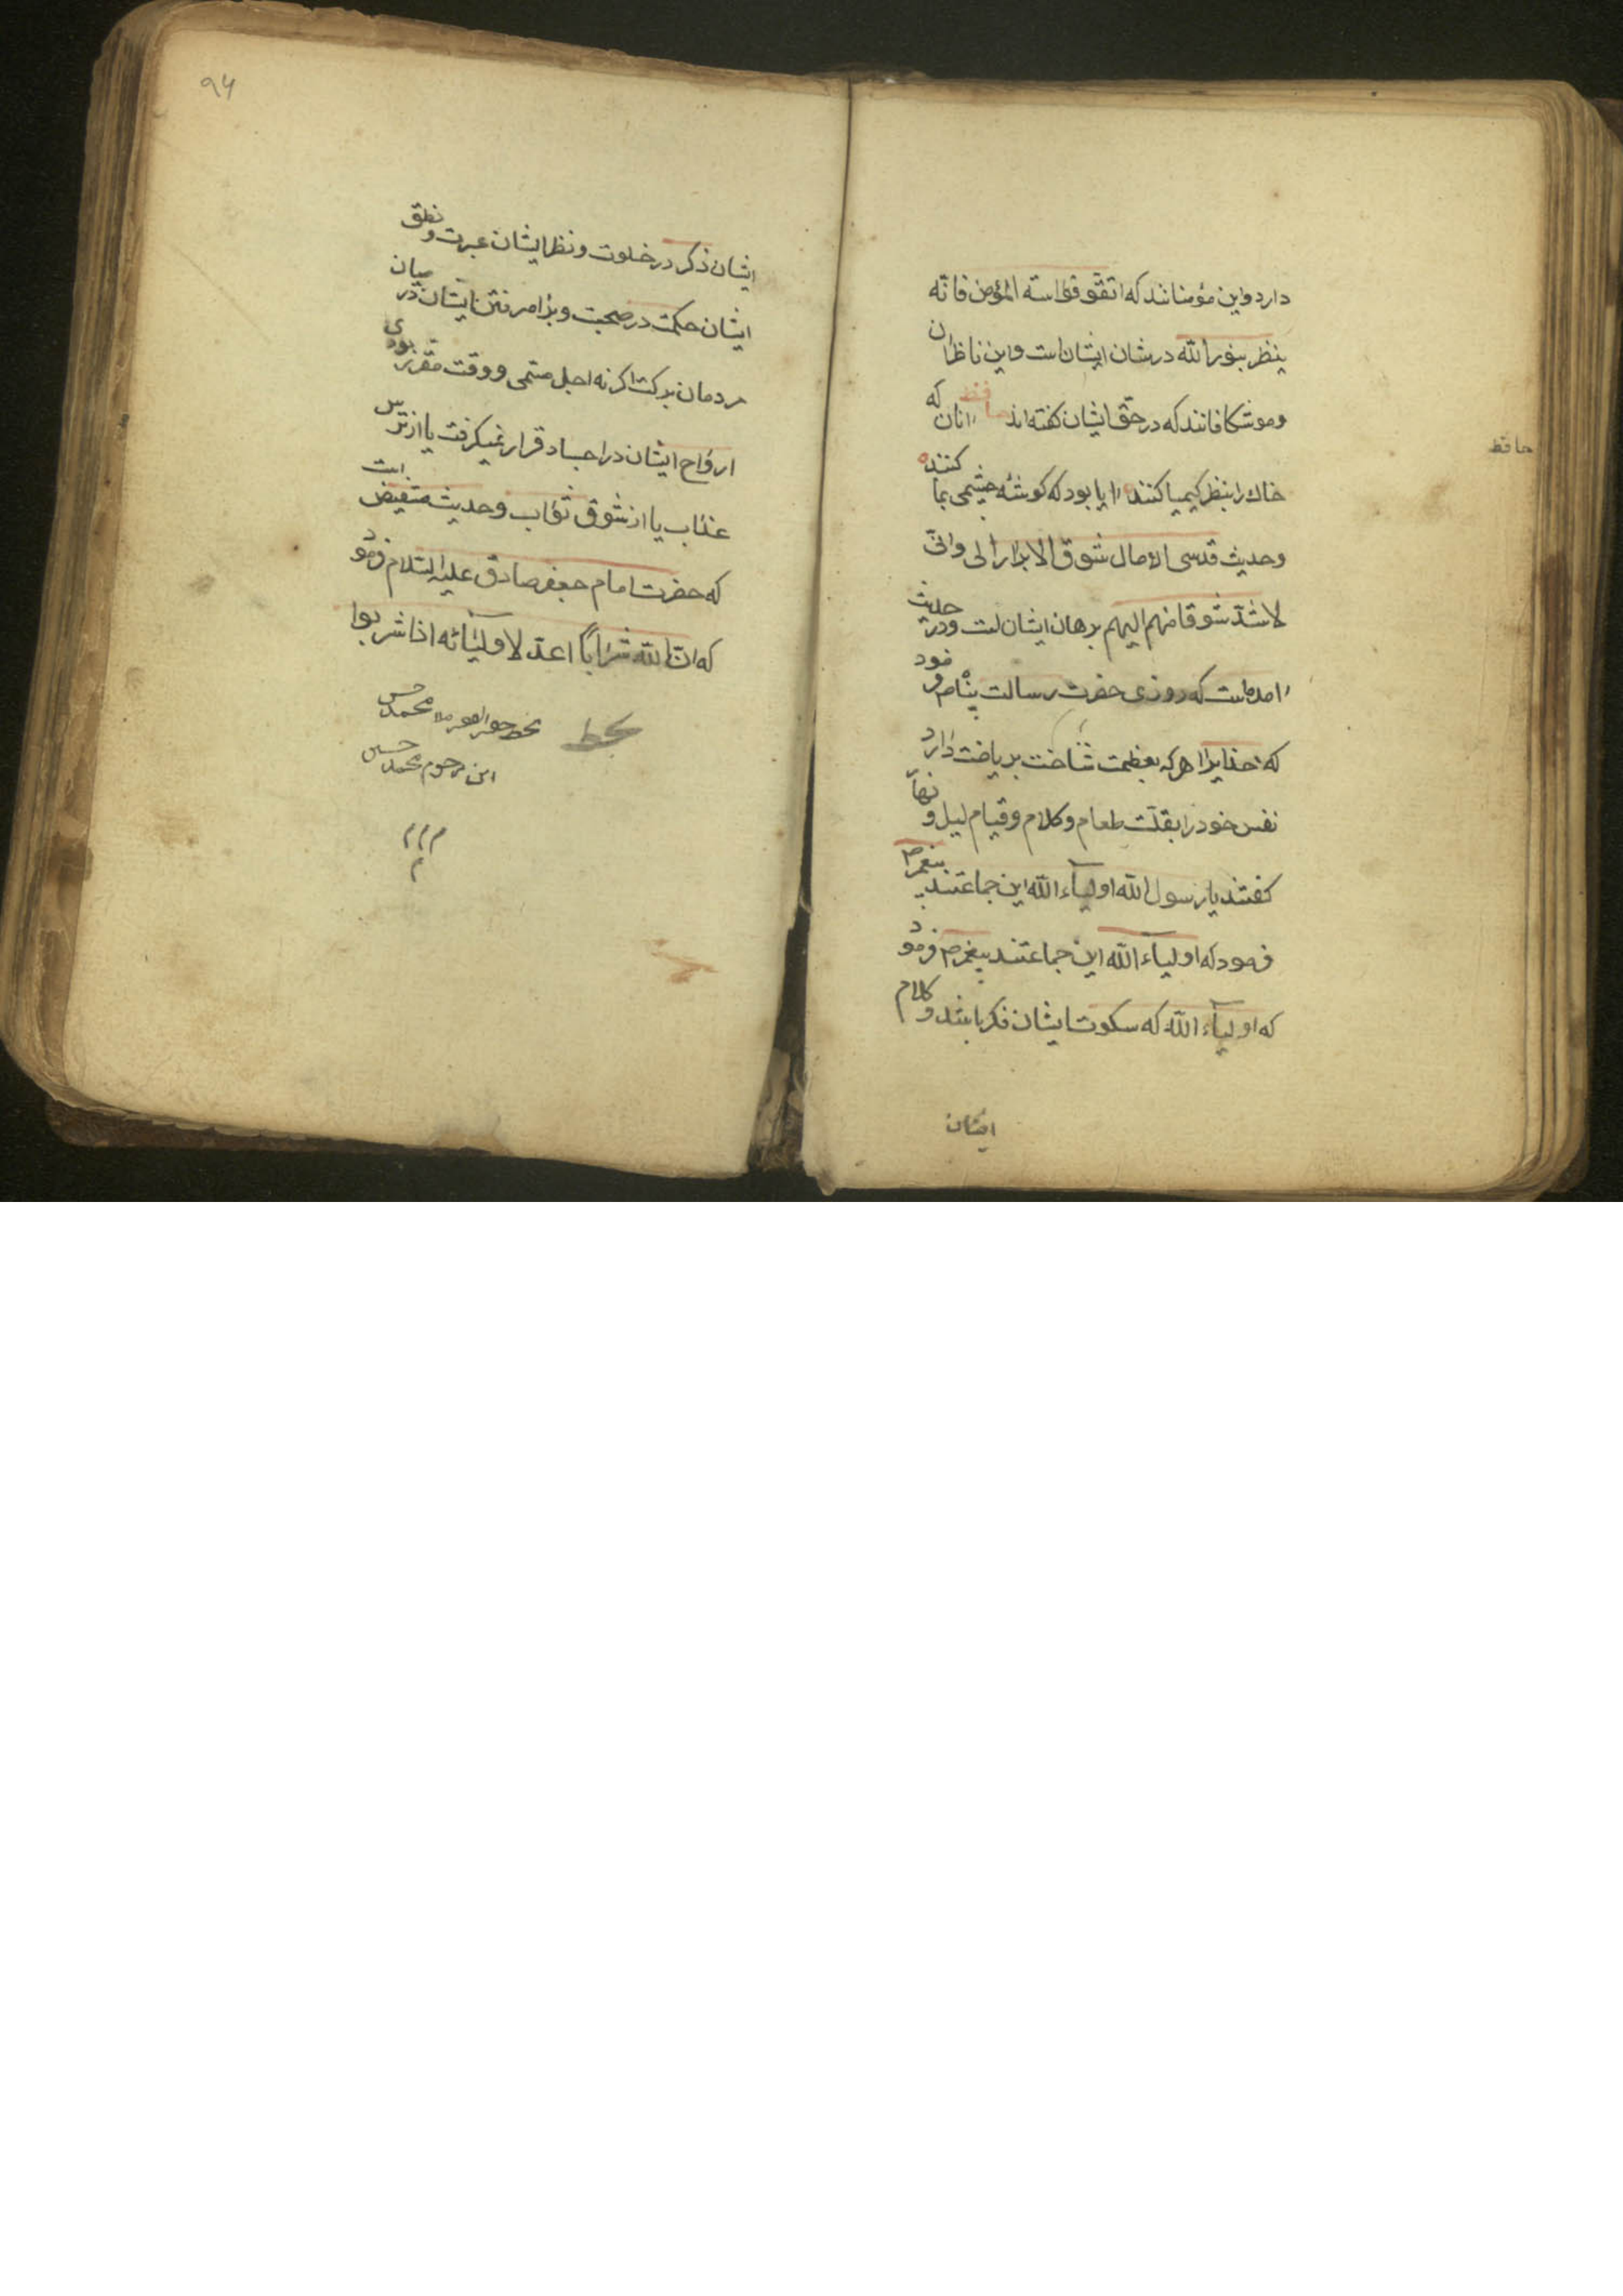 دارد واین مؤمنانند که اتقوا فراسة المؤمن فانه
ینظر بنور الله در شان ایشان است واین ناظران
وموشکافانند که در حق ایشان کفته اند حافظ انان که
حافظ
خاك را بنظر کیمیا کنند ایا بود که کوشه چشمی بما کنند
وحدیث قدسی الا طال شوق الابرار الی وانی
لاشد شوقا منهم الیهم برهان ایشان است ودر حدیث
امده است که روزی حضرت رسالت پناه فرمود
که خدایرا هرکه بعظمت شناخت بریاضت دارد
نفس خود را بقلت طعام وکلام وقیام لیل ونهار
کفتند یا رسول الله اولیآء الله این جماعتند پیغمبر ص
فرمود که اولیآء الله این جماعتند پیغمبر ص فرمود
که اولیآء الله که سکوت ایشان فکر باشد وکلام
ایشان
۹۴
ایشان ذکر در خلوت ونظر ایشان عبرت ونطق
ایشان حکمت در صحبت وبرامد رفتن ایشان در میان
مردمان برکت اکر نه اجل مسمی ووقت مقرر بودی
ارواح ایشان در اجساد قرار نمیکرفت یا از ترس
عذاب یا از شوق ثواب وحدیث مستفیض است
که حضرت امام جعفر صادق علیه السلام فرمود
که ان لله شرابا اعد لاولیائه اذا شربوا
بخط
بخط محمد حسن
ابن مرحوم محمد حسین